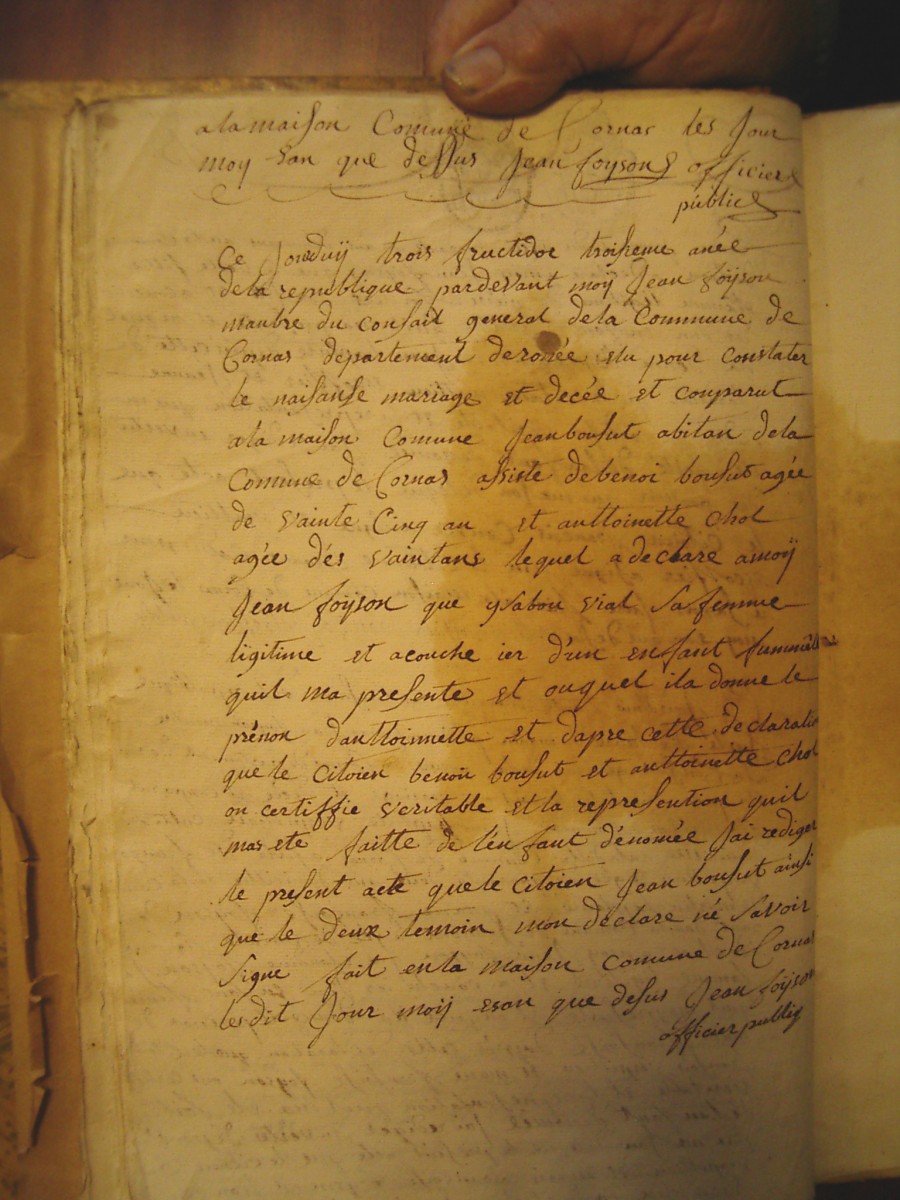 a la maison Comune de Cornas les Jour
moy San que dessus Jean foyson officier
public
Ce Jourduÿ trois fructidor troiseme anée
de la republique pardevant moÿ Jean foÿson
manbre du consait general de la Commune de
Cornas departement de ronée elu pour Constater
le naisanse mariage et decée et conparut
a la maison Comune Jean bousut abitan de la
Comune de Cornas assiste de benoi bousut agée
de vainte Cinq an et anttoinette chol
agée dés vaintans lequel a declare a moÿ
Jean foÿson que ysabou vial sa femme
ligitime et acouche ier d'un enfant fummelle
quil ma presente et ouquel ila donne le
prénon danttoinnette et dapre cette declaratio
que le Citoien benoü bousut et anttoinette chol
on certiffie veritable et la represention quil
mas ete faitte de l'enfant dénomée Jai rediger
le present acte que le Citoien Jean bousut ainsi
que le deux temoin mon declare né savoir
signe fait en la maison Comune de Cornas
les dit Jour moÿ esan que desus Jean foÿson
officier publiq